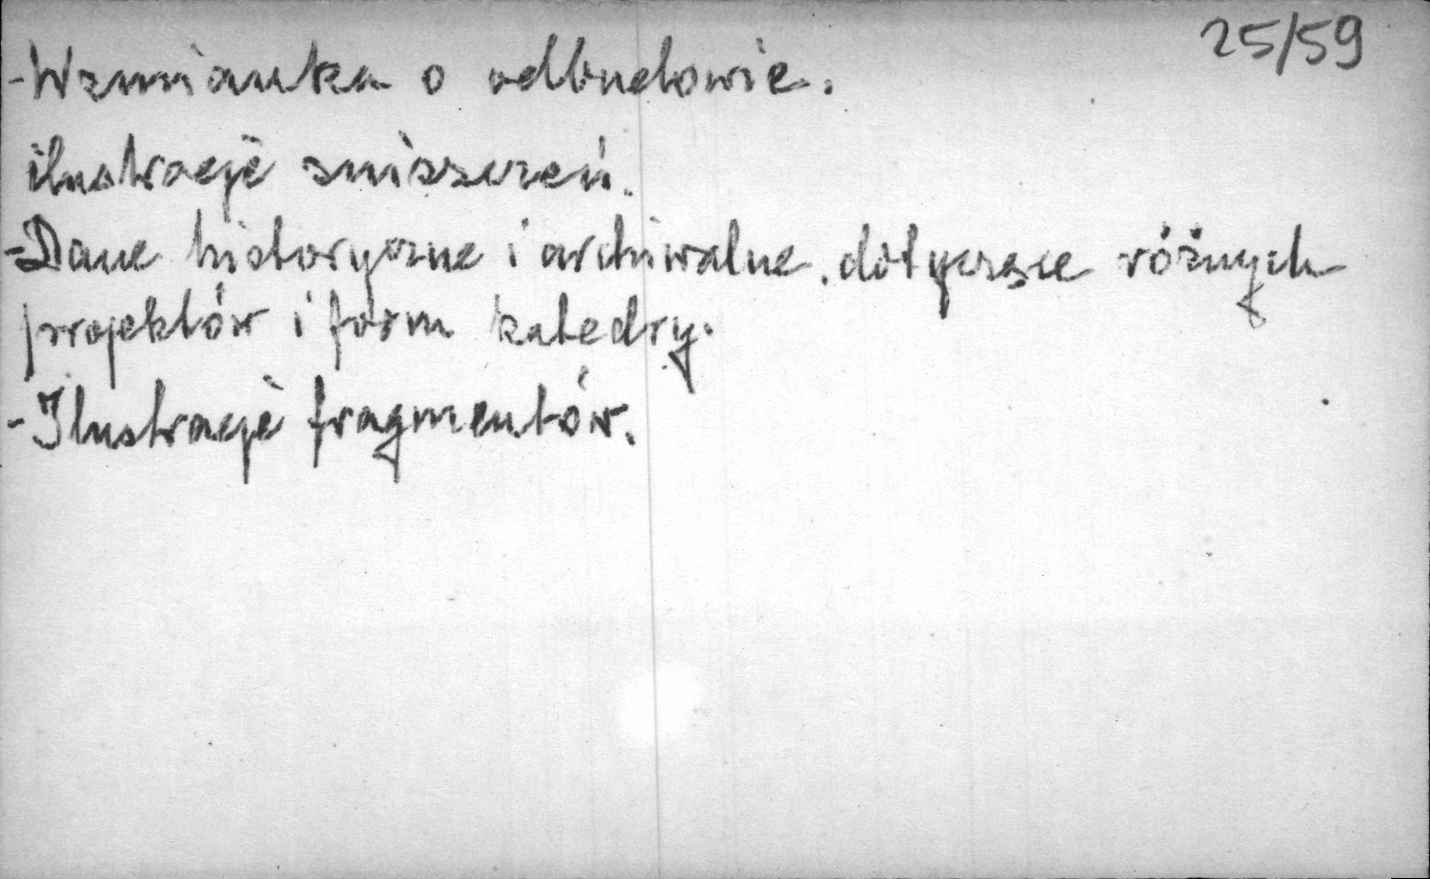 25/59
-Wzmianka o odbudowie.
ilustracje zniszczeń.
-Dane historyczne i archiwalne, dotyczące różnych
projektów i form katedry.
-Ilustracje fragmentów.